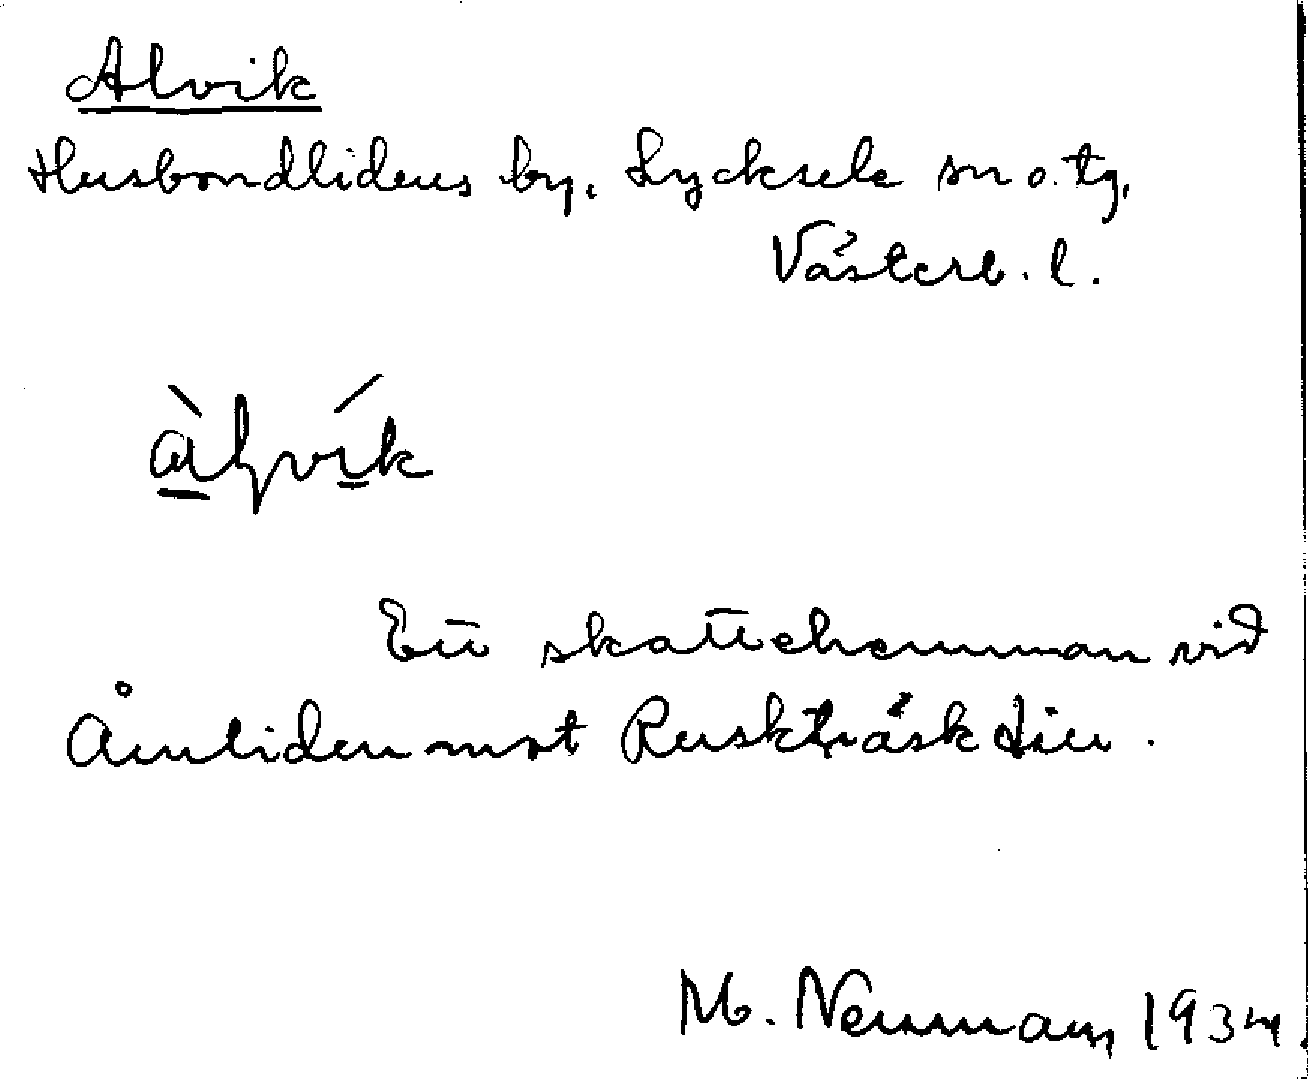 Alvik
Husbondlidens by, Lycksele sn o. tg,
Västerb. l.
àlvík
Ett skattehemman vid
Åmliden mot Ruskträsk
M. Neumann 1934